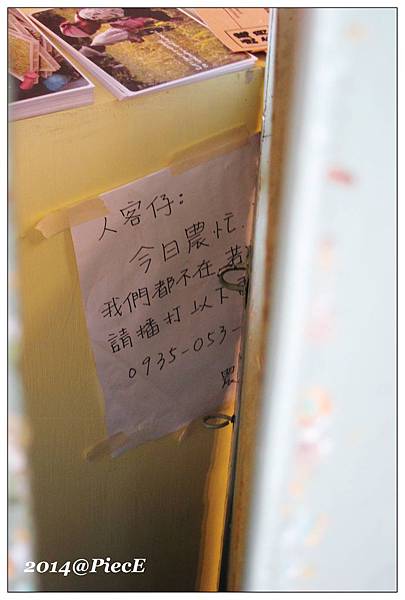 人客仔:
今日農忙.
我們都不在,若
請播打以下
0935-053-
農
2014@PiecE